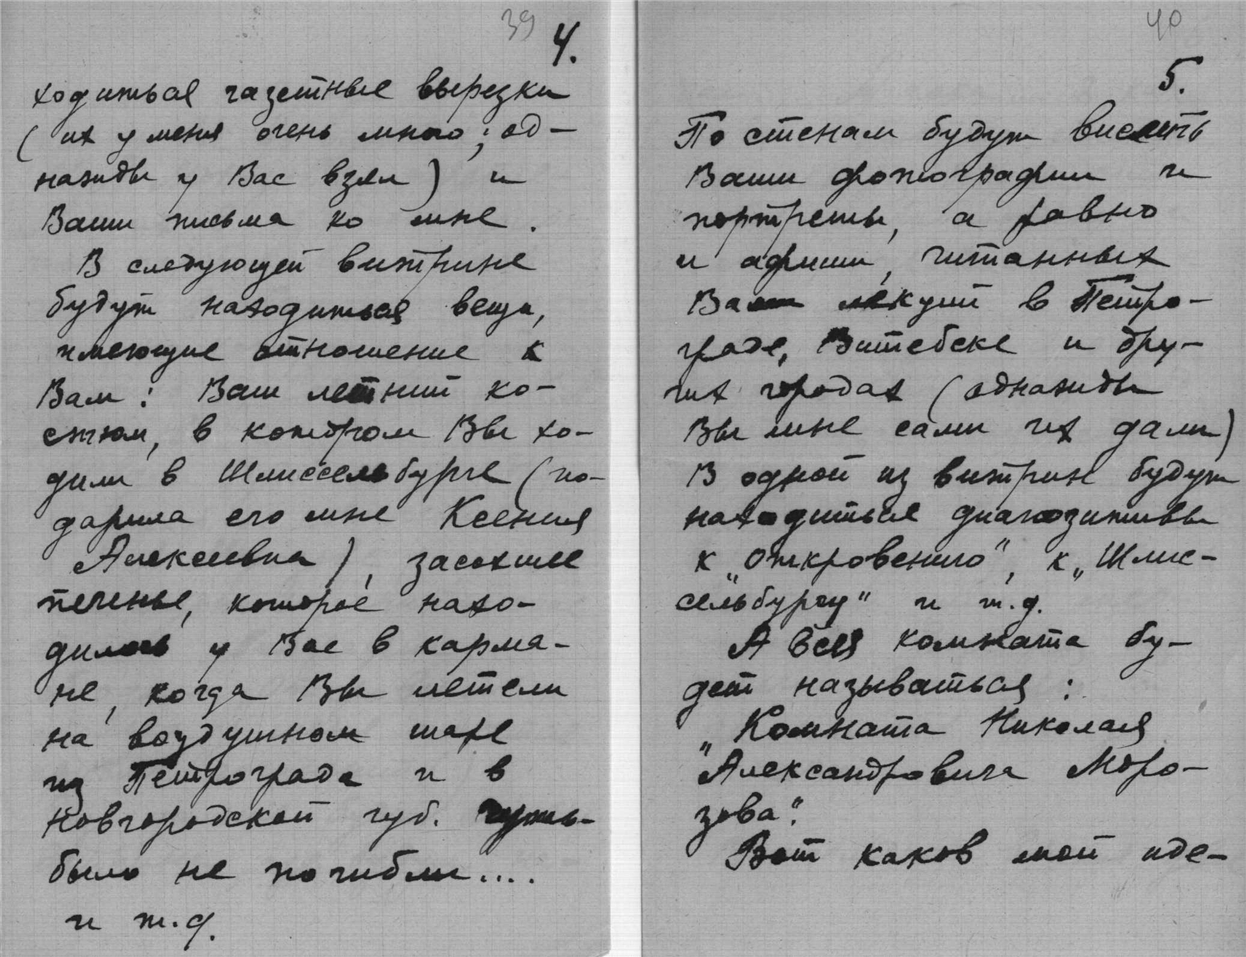 39
4.
ходиться газетные вырезки
(их у меня очень много; од-
нажды у Вас взял) и
Ваши письма ко мне.
В следующей витрине
будут находиться вещи,
имеющие отношение к
Вам: Ваш летний ко-
стюм, в котором Вы хо-
дили в Шлиссельбурге (по-
дарила его мне Ксения
Алексеевна), засохшее
печенье, которое нахо-
дилось у Вас в карма-
не, когда Вы летели
на воздушном шаре
из Петрограда и в
Новгородской губ. чуть-
было не погибли....
и т.д.
40
5.
По стенам будут висеть
Ваши фотографии и
портреты, а равно
и афиши, читанных
Вами лекций в Петро-
граде, Витебске и дру-
гих городах (однажды
Вы мне сами их дали)
В одной из витрин будут
находиться диапозитивы
к „Откровению", к „Шлис-
сельбургу" и т.д.
А вся комната бу-
дет называться:
„Комната Николая
Александровича Моро-
зова".
Вот каков мой иде-